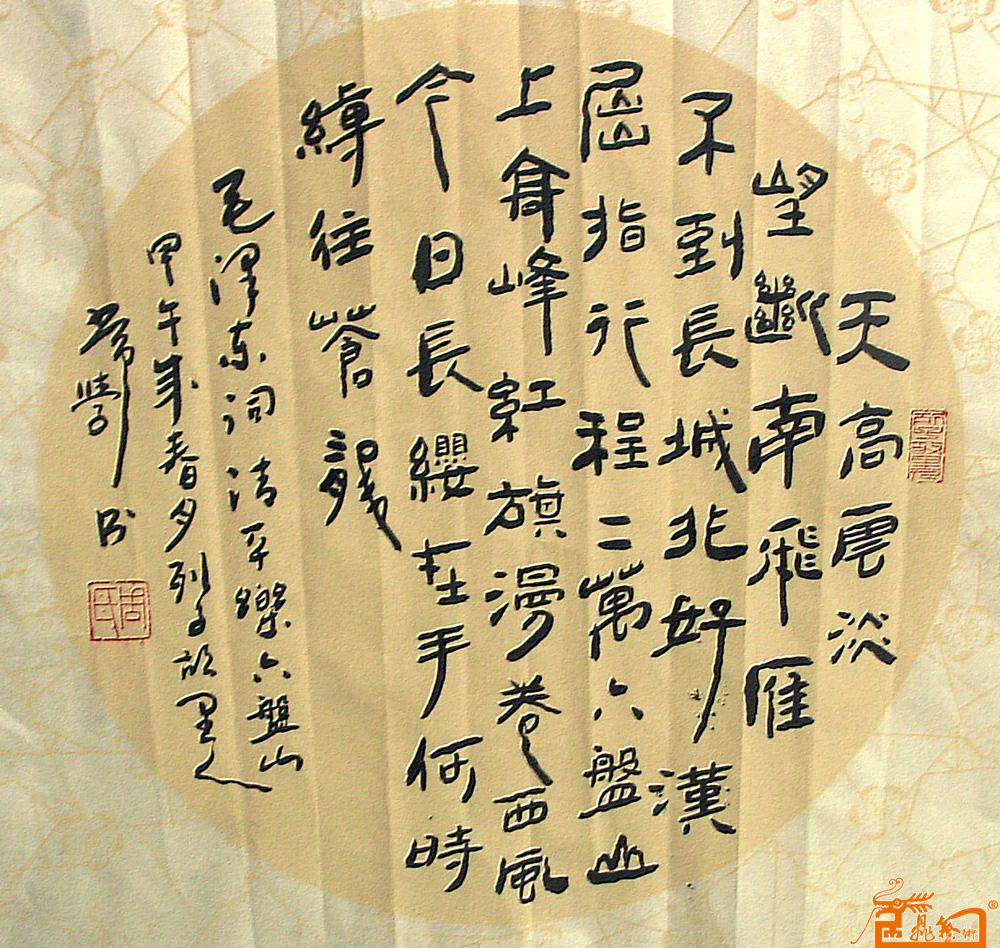 天高雲淡
望斷南飛雁
不到長城非好漢
屈指行程二萬六盤山
上高峰紅旗漫卷西風
今日長纓在手何時
縛住蒼龍
毛澤东词清平樂六盤山
甲午年春夕列子故里人
书